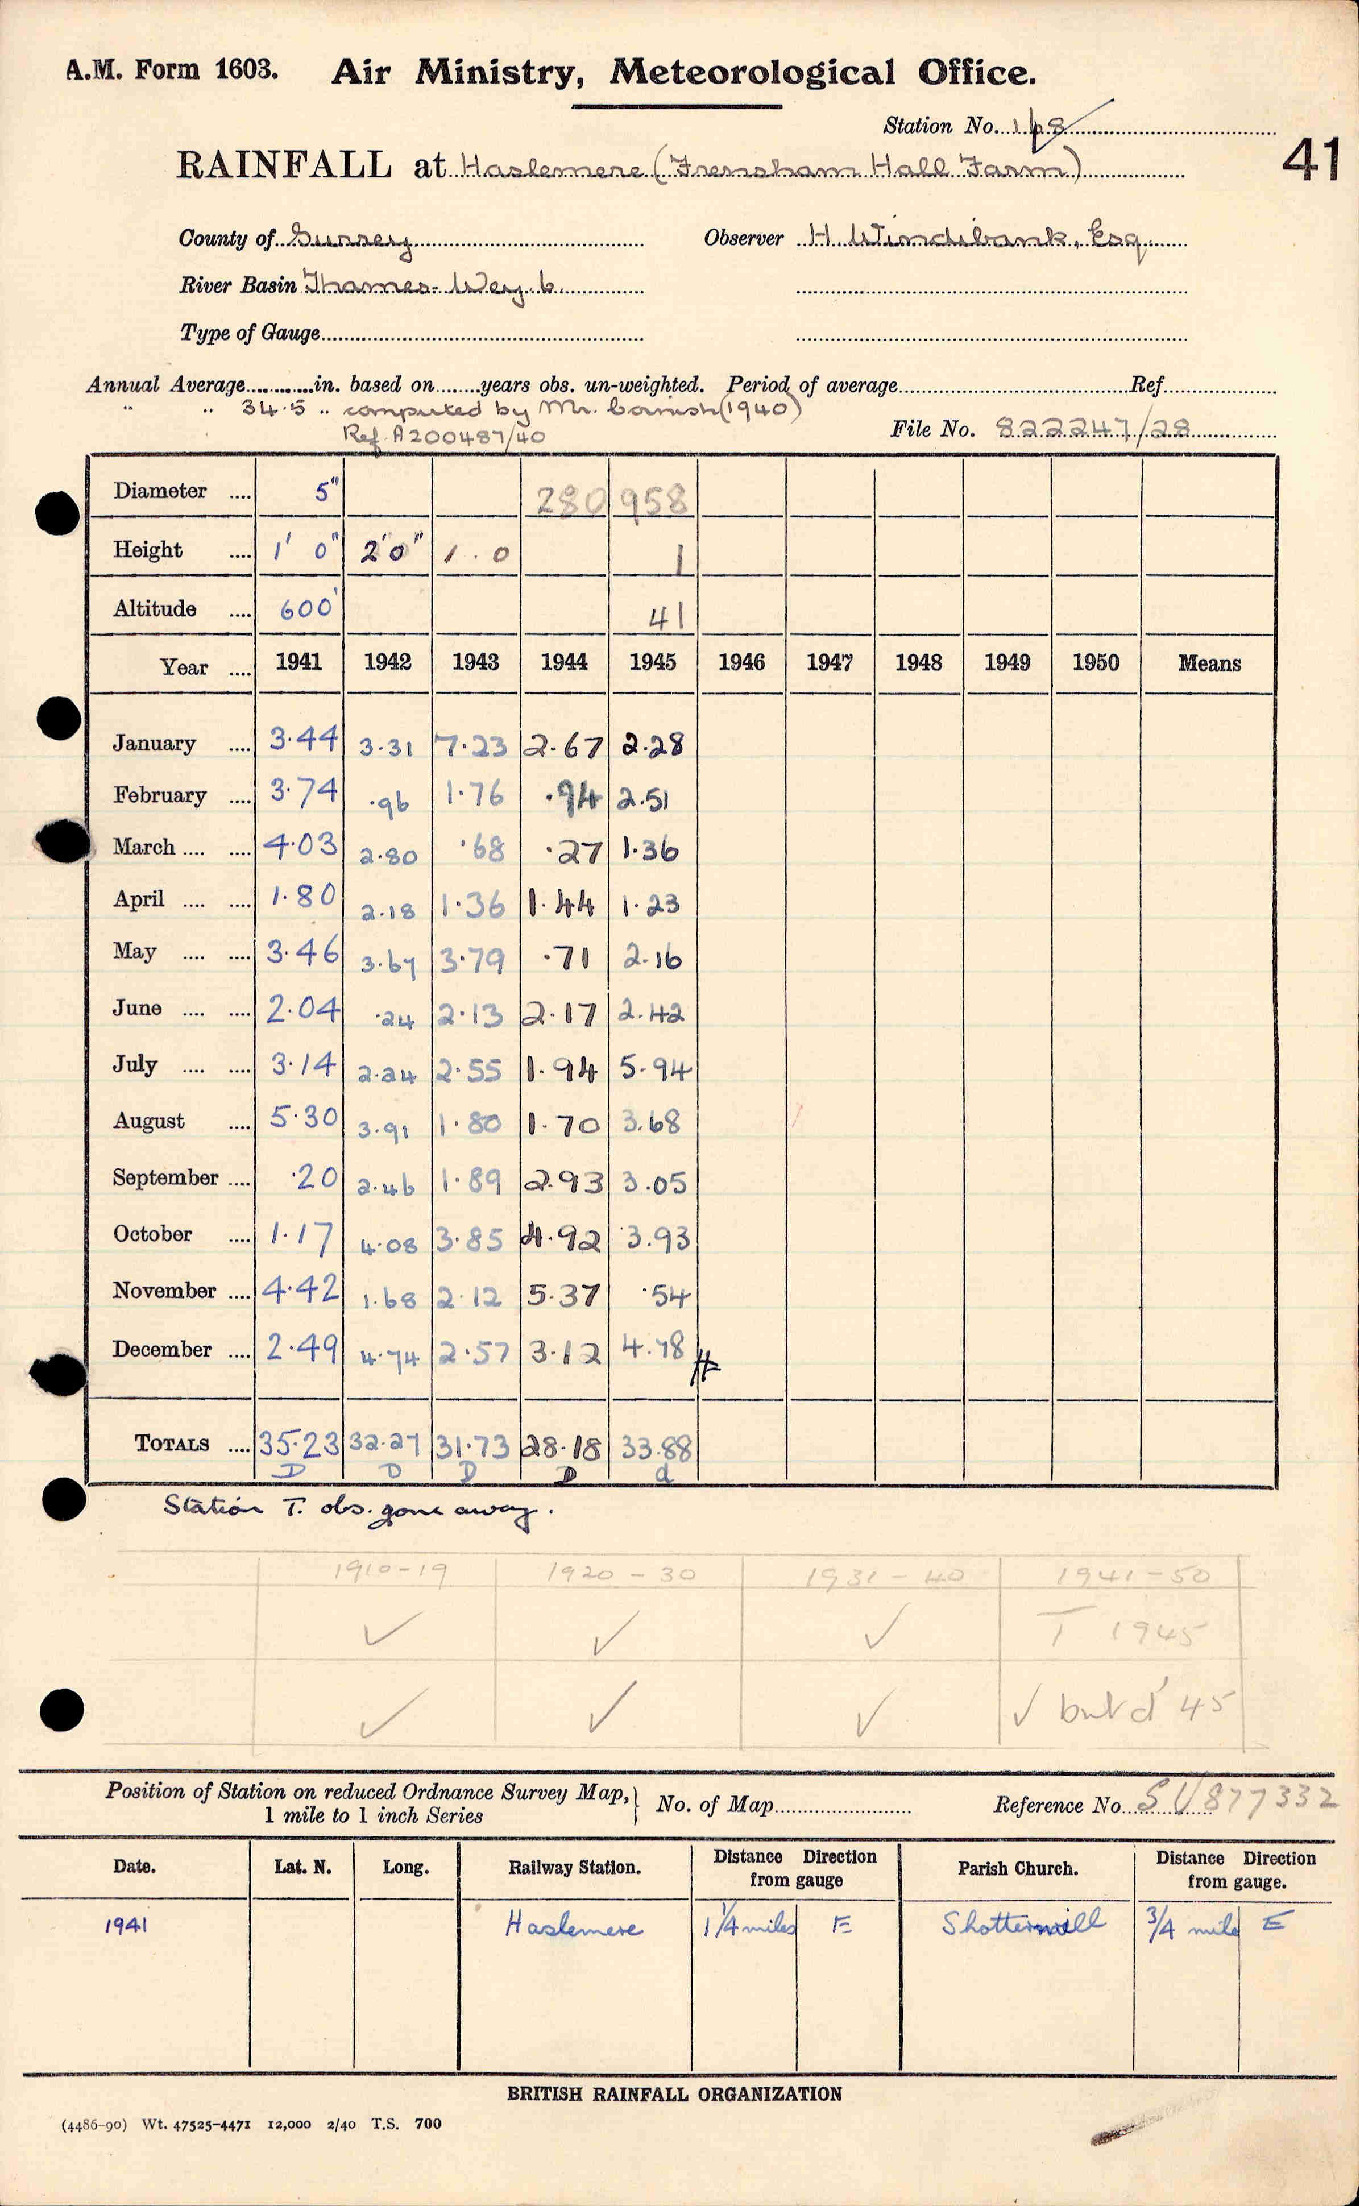 A.M. Form 1603. Air Ministry, Meteorological Office.
Station No. 168
RAINFALL at Haslemere (Frensham Hall Farm) 41
County of Surrey Observer H. Windebank, Esq.
River Basin Thames-Wey. 6.
Type of Gauge
Annual Average in. based on years obs. un-weighted. Period of average Ref.
" " 34.5 " computed by Mr. Cornish (1940)
Ref. A200487/40 File No. 822247/28
Diameter .... 5" 280 958
Height .... 1' 0" 2'0" 1.0 1
Altitude .... 600' 41
Year .... 1941 1942 1943 1944 1945 1946 1947 1948 1949 1950 Means
January .... 3.44 3.31 7.23 2.67 2.28
February .... 3.74 .96 1.76 .94 2.51
March .... .... 4.03 2.80 .68 .27 1.36
April .... .... 1.80 2.18 1.36 1.44 1.23
May .... .... 3.46 3.67 3.79 .71 2.16
June .... .... 2.04 .24 2.13 2.17 2.42
July .... .... 3.14 2.24 2.55 1.94 5.94
August .... 5.30 3.91 1.80 1.70 3.68
September .... .20 2.46 1.89 2.93 3.05
October .... 1.17 4.08 3.85 4.92 3.93
November .... 4.42 1.68 2.12 5.37 .54
December .... 2.49 4.74 2.57 3.12 4.78
TOTALS .... 35.23 32.27 31.73 28.18 33.88
D D D D d
Station T. obs. gone away.
1910-19 1920-30 1931-40 1941-50
✓ ✓ ✓ T 1945
✓ ✓ ✓ ✓ but d' 45
Position of Station on reduced Ordnance Survey Map, 1 mile to 1 inch Series } No. of Map Reference No. SU877332
Date. Lat. N. Long. Railway Station. Distance from gauge Direction Parish Church. Distance from gauge. Direction
1941 Haslemere 1 1/4 miles E Shottermill 3/4 mile E
BRITISH RAINFALL ORGANIZATION
(4486-90) Wt. 47525-4471 12,000 2/40 T.S. 700